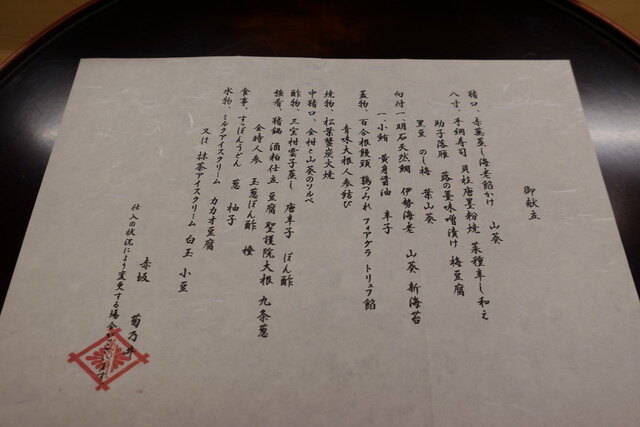 御献立
猪口、赤蕪蒸し海老餡かけ 山葵
八寸、手綱寿司 貝柱唐墨粉焼 菜種辛し和え
助子落雁 蕗の薹味噌漬け 梅豆腐
黒豆 のし梅 葉山葵
向付一 明石天然鯛 伊勢海老 山葵 新海苔
一 小鮪 黄身醤油 辛子
蓋物、百合根饅頭 鶉つみれ フォアグラ トリュフ餡
焼物、松葉蟹炭火焼
青味大根人参結び
中猪口、金柑と山葵のソルベ
酢物、三宝柑雲子蒸し 唐辛子 ぽん酢
強肴、猪鍋 酒粕仕立 豆腐 聖護院大根 九条葱
金時人参 玉葱ぽん酢 橙
食事、すっぽんうどん 葱 柚子
水物、ミルクアイスクリーム カカオ豆腐
又は 抹茶アイスクリーム 白玉 小豆
赤坂 菊乃井
仕入の状況により変更する場合がございます